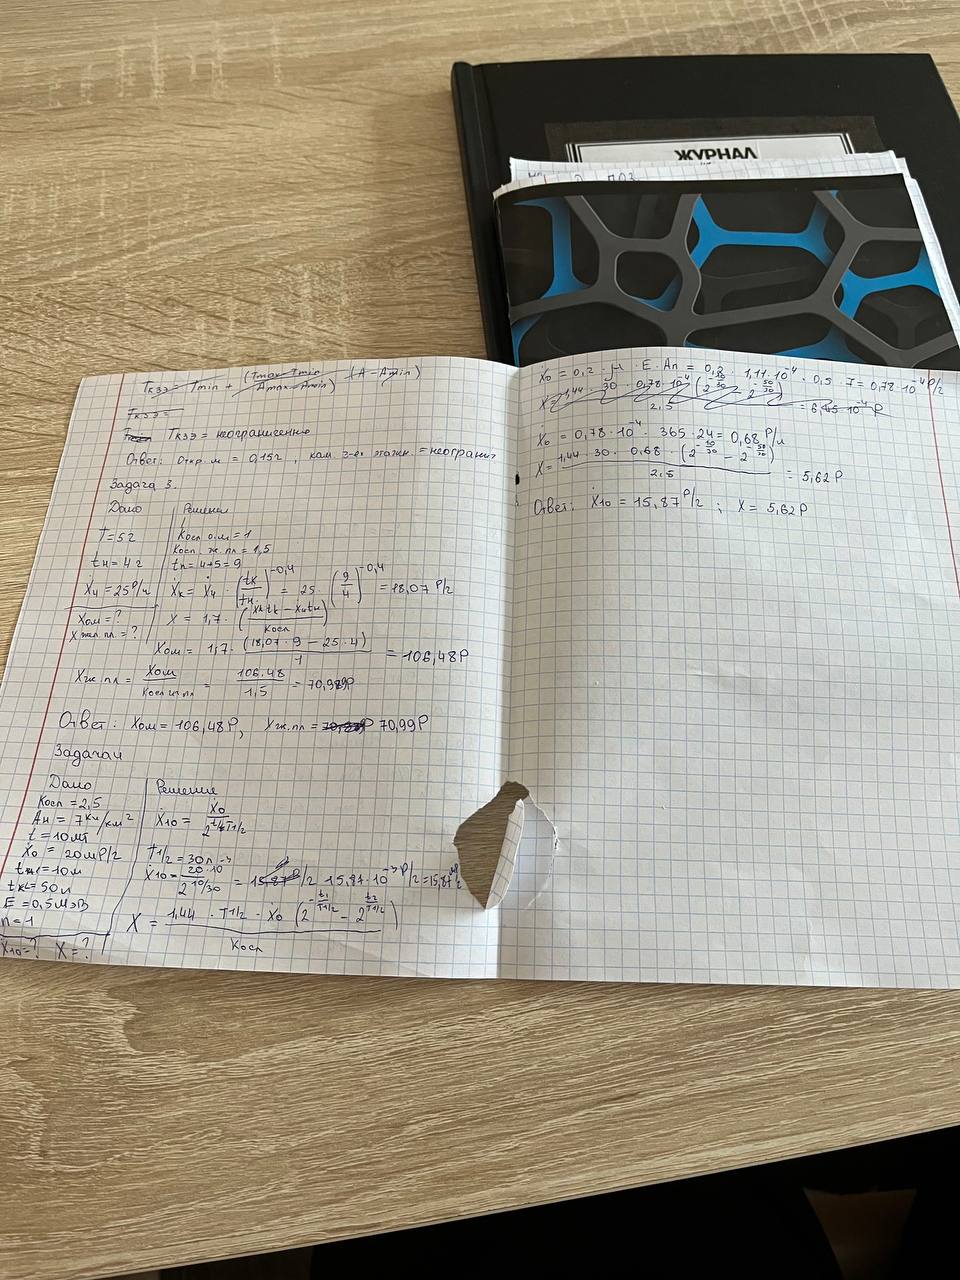 ЖУРНАЛ
Tкээ = Tmin + (Tmax - Tmin / Amax - Amin) (A - Amin)
Tкээ =
Tкээ = неограниченно
Ответ: Откр. м = 0,152, кам = неогранич
Задача 3.
Дано
Решение
T = 52
tн = 42
Ẋ4 = 25 Р/ч
Xом = ?
X жел. пл. = ?
Kосл о.м = 1
Kосл. ж. пл = 1,5
tк = 4+5 = 9
Ẋк = Ẋ4 · (tк/tн)^-0,4 = 25 · (9/4)^-0,4 = 18,07 Р/2
X = 1,7 · (Ẋкtк - Ẋнtн / Kосл)
Xом = 1,7 · (18,07 · 9 - 25 · 4) / 1 = 106,48 Р
Xж.пл = Xом / Kосл ж.пл = 106.48 / 1,5 = 70,99 Р
Ответ: Xом = 106,48 Р, Xж.пл = 70,99 Р
Задача 4
Дано
Решение
Kосл = 2,5
Aн = 7 Ku/км²
t = 10 лет
Ẋ0 = 20 мР/2
tн = 10 л
tк = 50 л
E = 0,5 МэВ
n = 1
Ẋ10 = ? X = ?
Ẋ10 = Ẋ0 / 2^t/T1/2
T1/2 = 30 л
Ẋ10 = 20 · 10^-3 / 2^10/30 = 15,87 · 10^-3 Р/2 = 15,87 мР/2
X = 1,44 · T1/2 · Ẋ0 (2^-t1/T1/2 - 2^-t2/T1/2) / Kосл
Ẋ0 = 0,2 · μ · E · Aн = 0,2 · 1,11 · 10^-4 · 0,5 · 7 = 0,78 · 10^-4 Р/2
X = 1,44 · 30 · 0,78 · 10^-4 (2^-10/30 - 2^-50/30) / 2,5 = 6,45 · 10^-4 Р
Ẋ0 = 0,78 · 10^-4 · 365 · 24 = 0,68 Р/л
X = 1,44 · 30 · 0,68 · (2^-10/30 - 2^-50/30) / 2,5 = 5,62 Р
Ответ: Ẋ10 = 15,87 Р/2 ; X = 5,62 Р